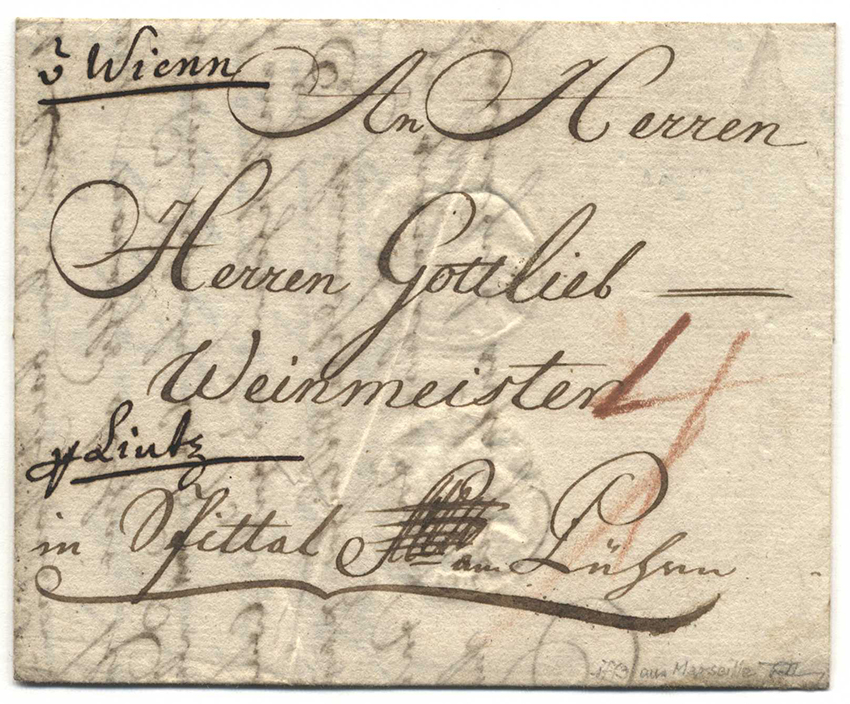 v Wienn
An Herren
Herren Gottlieb
Weinmeister
4
pr Lintz
in Spittal am Pührn
aus Marseille